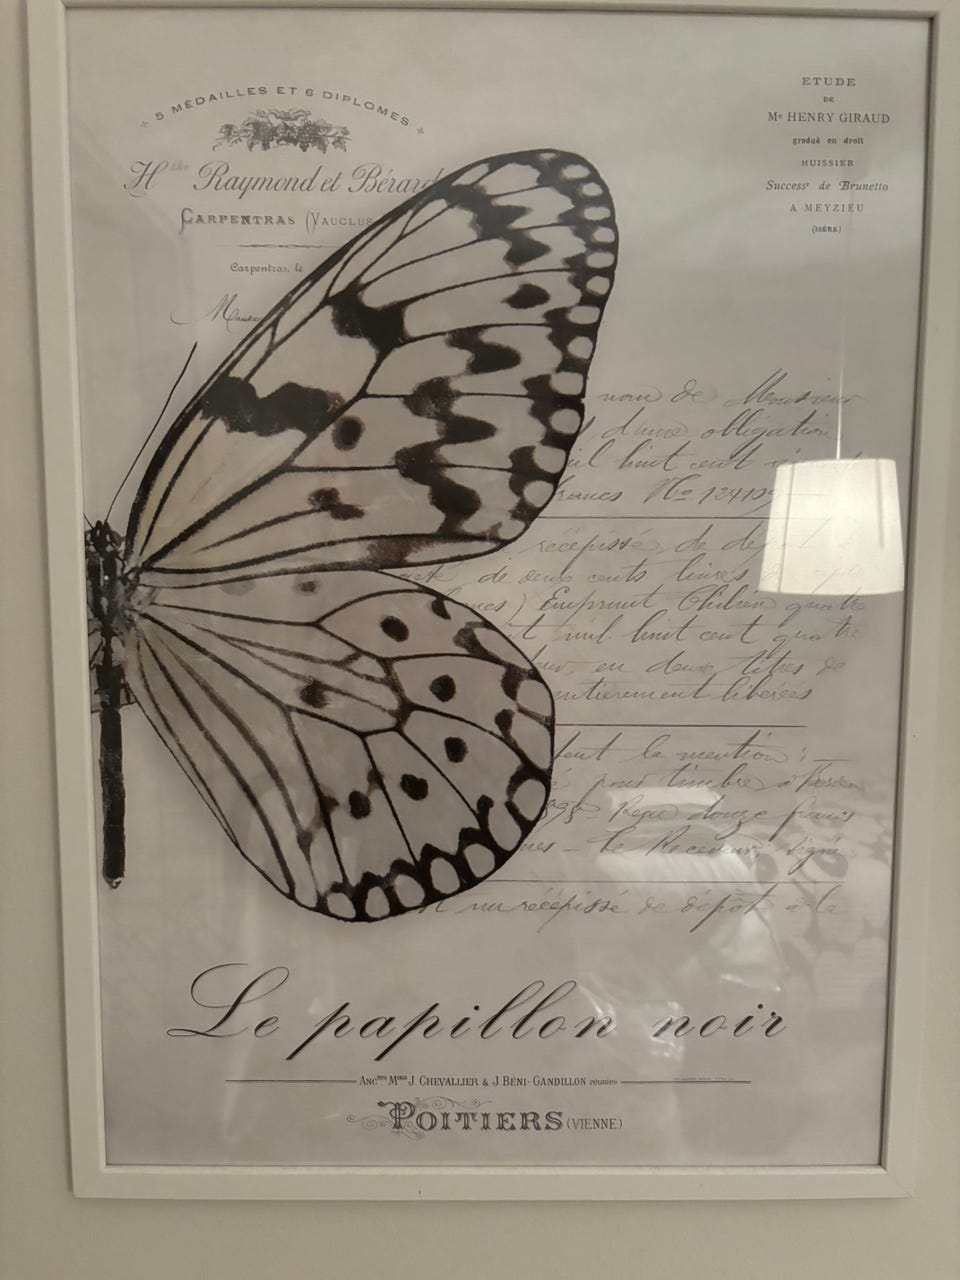 5 MÉDAILLES ET 6 DIPLOMES
Hthe Raymond et Bérard
CARPENTRAS (VAUCLUS
Carpentras, le
ETUDE
DE
Me HENRY GIRAUD
gradué en droit
HUISSIER
Successr de Brunetto
A MEYZIEU
(ISÈRE)
nom de Monsieur
d'une obligation
mil huit cent
francs No 124109
récépissé de dép
de deux cents livres
Emprunt Chilien quatre
mil huit cent quatre
en deux titres de
entièrement libérées
la mention :
pour timbre à
Reçu douze francs
Le Receveur, signé
un récépissé de dépôt à la
Le papillon noir
ANCnes Mons J. CHEVALLIER & J. BÉNI-GANDILLON réunies
POITIERS (VIENNE)